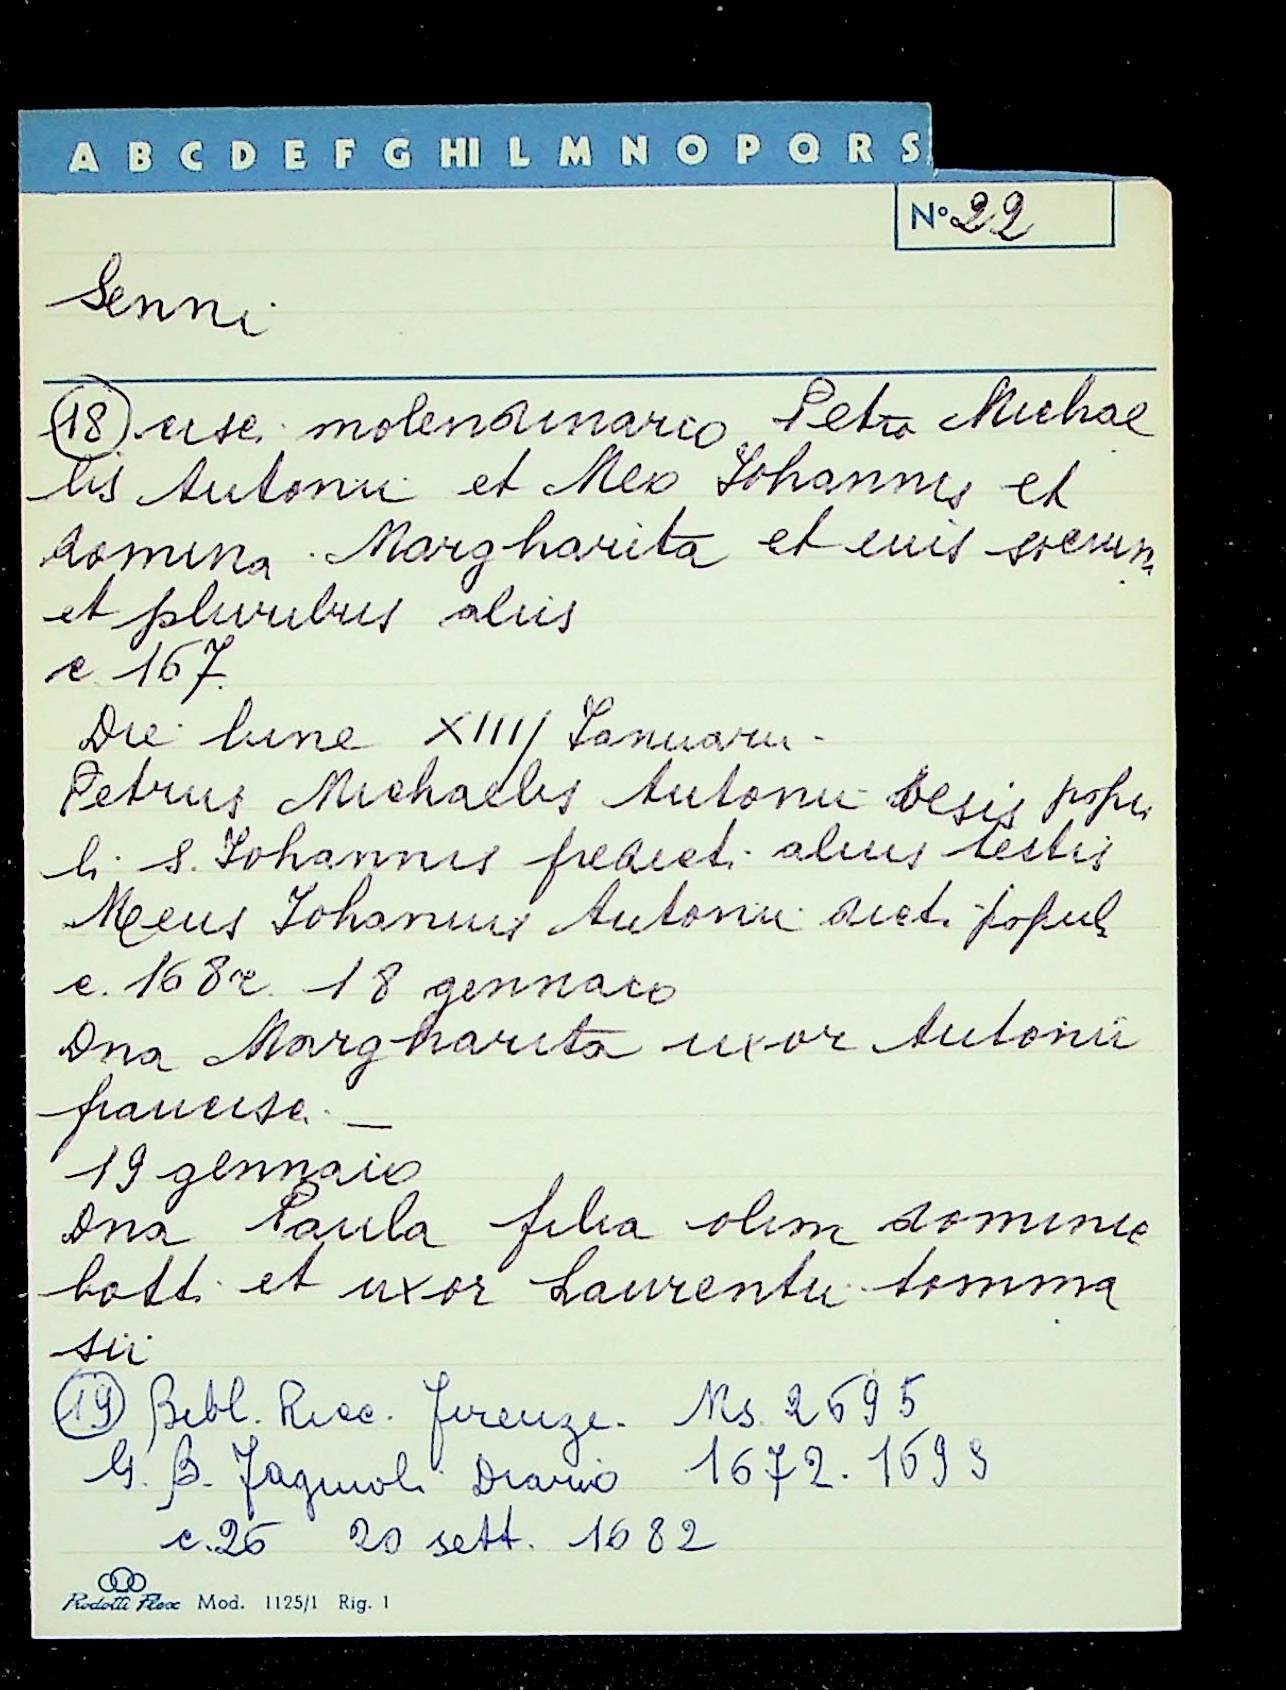 A B C D E F G HI L M N O P Q R S
N° 22
Senni
(18) cisc. molendinario Petro Michae
lis Antonii et Meo Iohannis et
domina Margharita et eius socium
et pluribus aliis
c. 167.
Die lune XIII/ Ianuarii
Petrus Michaelis Antonii popu
li S. Iohannis predict. alius testis
Meus Iohannis Antonii dict. popul
c. 168r. 18 gennaio
Dna Margharita uxor Antonii
francisc. —
19 gennaio
Dna Paula filia olim dominic
batt. et uxor Laurentii tomma
sii
(19) Bibl. Ricc. Firenze. Ms. 2695
G. B. Fagiuoli Diario 1672. 1695
c. 26 20 sett. 1682
Rodotti Flex Mod. 1125/1 Rig. 1